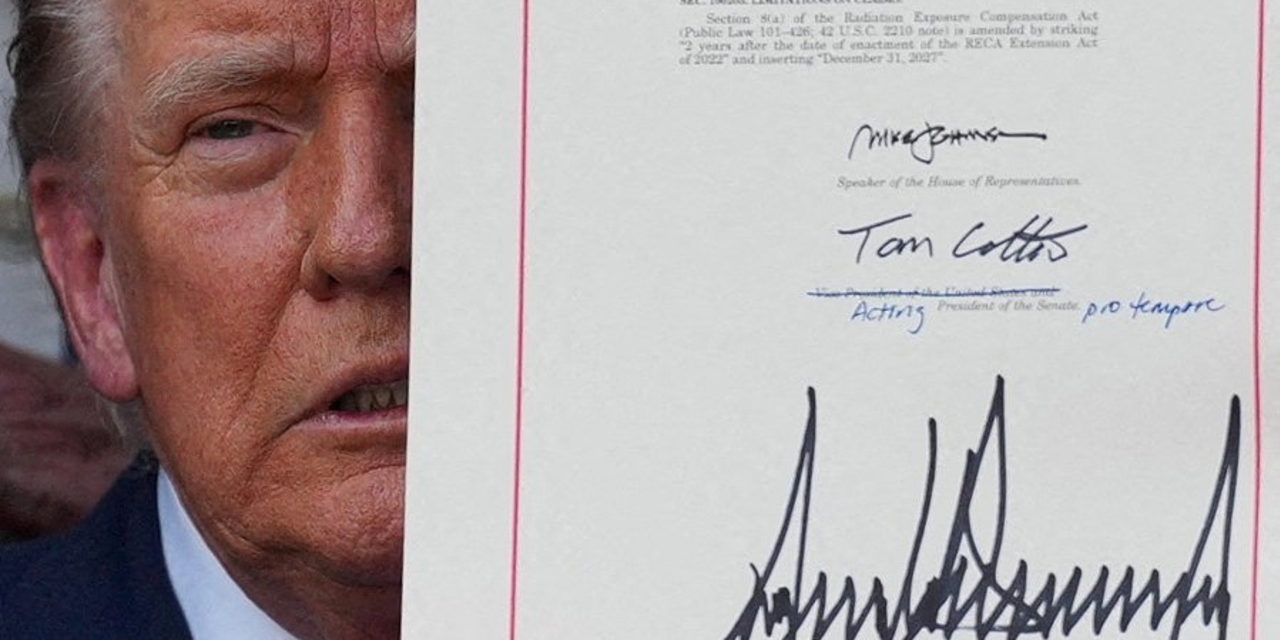 Section 8(a) of the Radiation Exposure Compensation Act
(Public Law 101–426; 42 U.S.C. 2210 note) is amended by striking
“2 years after the date of enactment of the RECA Extension Act
of 2022” and inserting “December 31, 2027”.
Mike Johnson
Speaker of the House of Representatives.
Tom Cotton
Vice President of the United States and
Acting President of the Senate. pro tempore